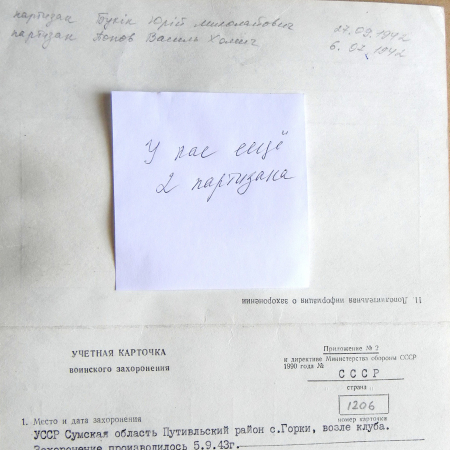 партизан Букін Юрій Миколайович 27.09.1942
партизан Попов Василь Хомич 6.02.1942
У нас ещё
2 партизана
11. Дополнительная информация о захоронении
УЧЕТНАЯ КАРТОЧКА
воинского захоронения
Приложение № 2
к директиве Министерства обороны СССР
1990 года №
СССР
страна
1206
номер карточки
1. Место и дата захоронения
УССР Сумская область Путивльский район с.Горки, возле клуба.
Захоронение производилось 5.9.43г.